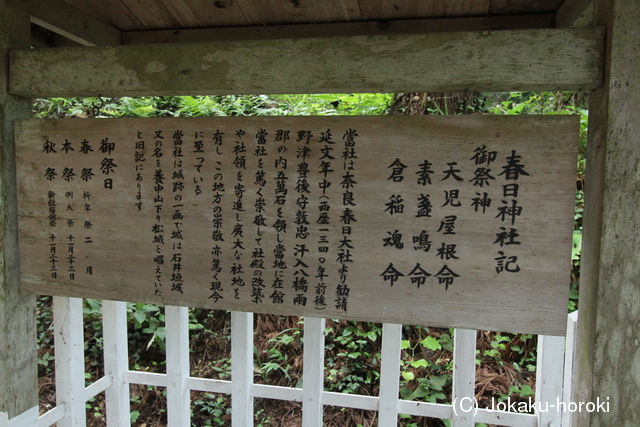 春日神社記
御祭神
天児屋根命
素盞鳴命
倉稲魂命
當社は奈良春日大社より勧請
延文年中(西座一三四〇年前後)
野津豊後守敦忠汗入八橋両
郡の内五萬石を領し當地に在館
當社を篤く崇敬して社殿の改築
や社領を寄進し廣大な社地を
有しこの地方の崇敬亦篤く現今
に至っている
當社は城跡の一画で城は石井垣城
又の名を養中山下り松城と唱えていた
と旧記にあります
御祭日
春祭 祈年祭 二月
本祭 例大祭 十一月二十三日
秋祭 新穀感謝祭 十一月二十三日
(C) Jokaku-horoki